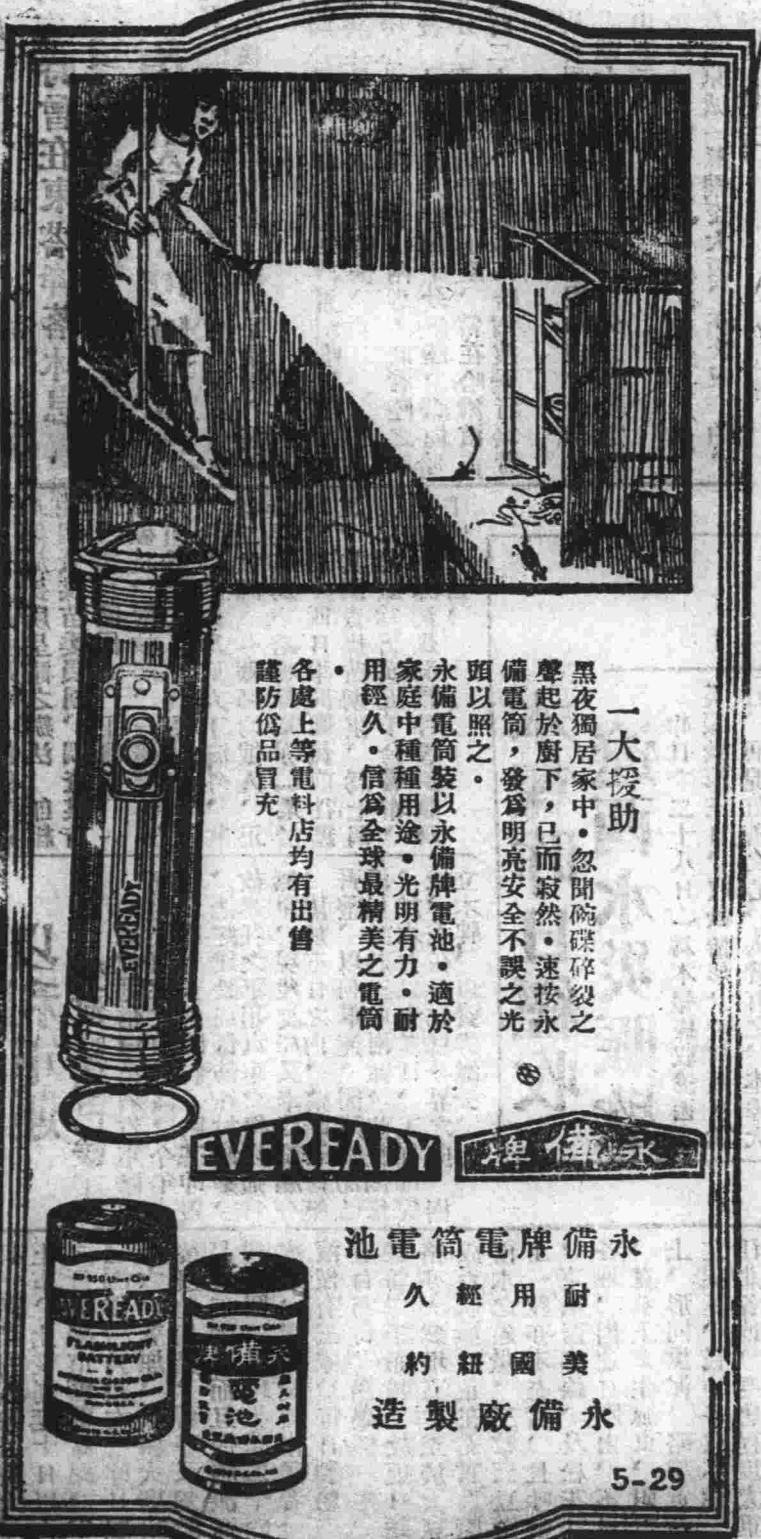 一大援助
黑夜獨居家中・忽聞碗碟碎裂之
聲起於廚下，已而寂然・速按永
備電筒，發爲明亮安全不誤之光
頭以照之・
永備電筒裝以永備牌電池・適於
家庭中種種用途・光明有力・耐
用經久・信爲全球最精美之電筒
・
各處上等電料店均有出售
謹防僞品冒充
EVEREADY
永備牌
EVEREADY
永備牌電筒電池
耐用經久
美國紐約
永備廠製造
EVEREADY
FLASHLIGHT
BATTERY
永備牌
電池
5-29